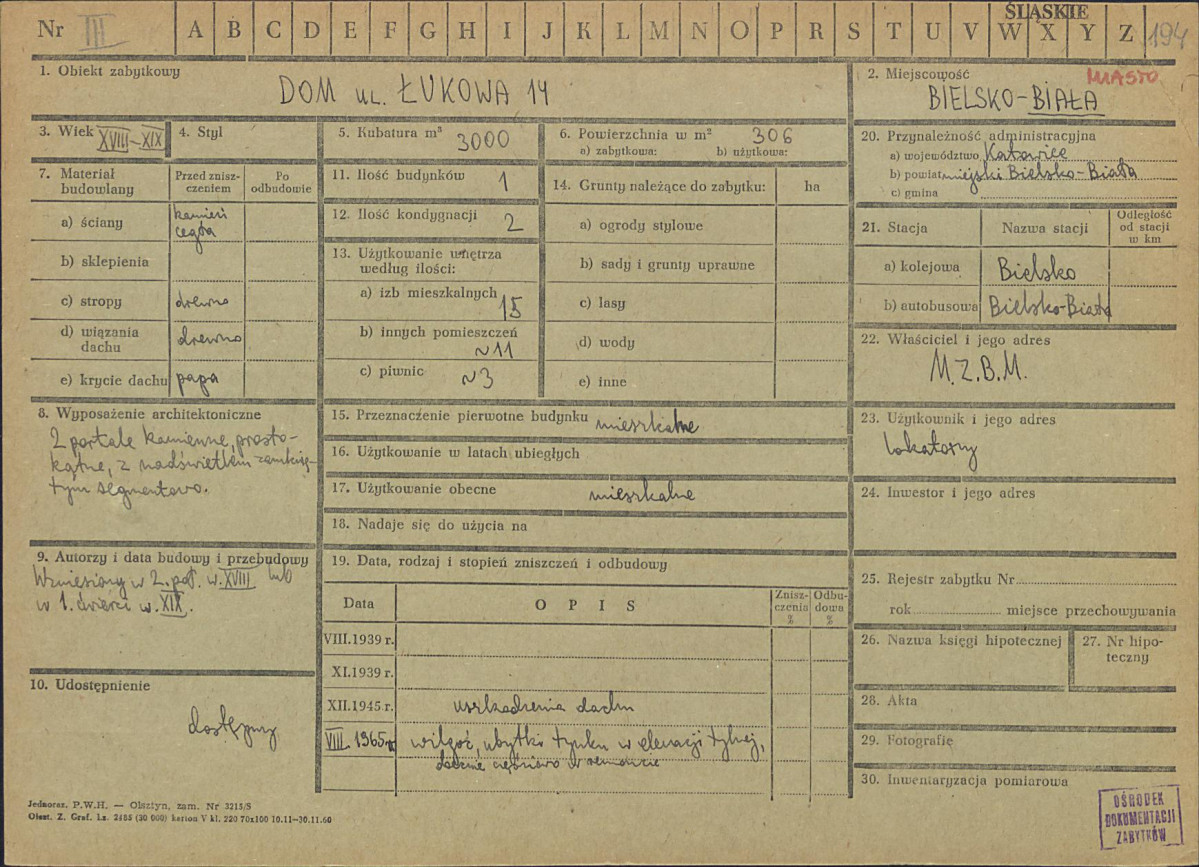 Nr III A B C D E F G H I J K L M N O P R S T U V W X Y Z 194
ŚLĄSKIE
1. Obiekt zabytkowy
DOM UL. ŁUKOWA 14
2. Miejscowość MIASTO
BIELSKO-BIAŁA
3. Wiek XVIII-XIX
4. Styl
5. Kubatura m³ 3000
6. Powierzchnia w m² 306
a) zabytkowa: b) użytkowa:
7. Materiał budowlany
Przed zniszczeniem
Po odbudowie
a) ściany kamień
cegła
b) sklepienia
c) stropy drewno
d) wiązania
dachu drewno
e) krycie dachu papa
8. Wyposażenie architektoniczne
2 portale kamienne, prosto-
kątne, z nadświetlem zamknię-
tym segmentowo.
9. Autorzy i data budowy i przebudowy
Wzniesiony w 2. poł. w. XVIII lub
w 1. ćwierci w. XIX.
10. Udostępnienie
dostępny
11. Ilość budynków 1
12. Ilość kondygnacji 2
13. Użytkowanie wnętrza
według ilości:
a) izb mieszkalnych 15
b) innych pomieszczeń
~11
c) piwnic ~3
14. Grunty należące do zabytku: ha
a) ogrody stylowe
b) sady i grunty uprawne
c) lasy
d) wody
e) inne
15. Przeznaczenie pierwotne budynku mieszkalne
16. Użytkowanie w latach ubiegłych
17. Użytkowanie obecne mieszkalne
18. Nadaje się do użycia na
19. Data, rodzaj i stopień zniszczeń i odbudowy
Data OPIS Znisz-
czenia
% Odbu-
dowa
%
VIII.1939 r.
XI.1939 r.
XII.1945 r. uszkodzenia dachu
VIII 1965 r. wilgoć, ubytki tynku w elewacji tylnej,
obecnie częściowo w remoncie
20. Przynależność administracyjna
a) województwo Katowice
b) powiat miejski Bielsko-Biała
c) gmina
21. Stacja Nazwa stacji Odległość
od stacji
w km
a) kolejowa Bielsko
b) autobusowa Bielsko-Biała
22. Właściciel i jego adres
M.Z.B.M.
23. Użytkownik i jego adres
lokatorzy
24. Inwestor i jego adres
25. Rejestr zabytku Nr
rok miejsce przechowywania
26. Nazwa księgi hipotecznej
27. Nr hipo-
teczny
28. Akta
29. Fotografie
30. Inwentaryzacja pomiarowa
Jednoraz. P.W.H. — Olsztyn, zam. Nr 3215/S
Olszt. Z. Graf. Lz. 2485 (30 000) karton V kl. 220 70x100 10.11—30.11.60
OŚRODEK
DOKUMENTACJI
ZABYTKÓW